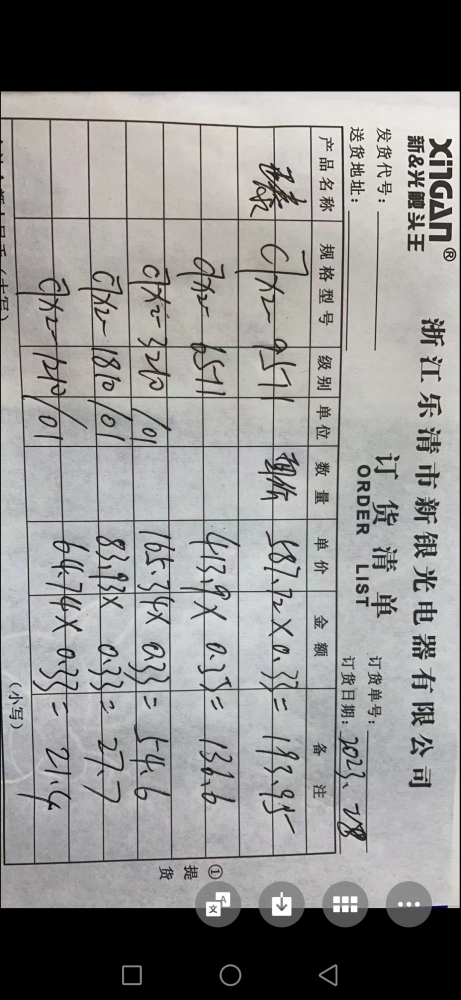 XinGAn®
新&光触头王
浙江乐清市新银光电器有限公司
订货清单
ORDER LIST
发货代号：
订货单号：
送货地址：
订货日期：2023.
产品名称 规格型号 级别 单位 数量 单价 金额 备注
9511 587.72 × 0.33 = 193.95
6511 413.9 × 0.33 = 136.6
3210 /01 165.34 × 0.33 = 54.6
1810 /01 83.93 × 0.33 = 27.7
1210/01 64.74 × 0.33 = 21.4
（小写）
①
提
货